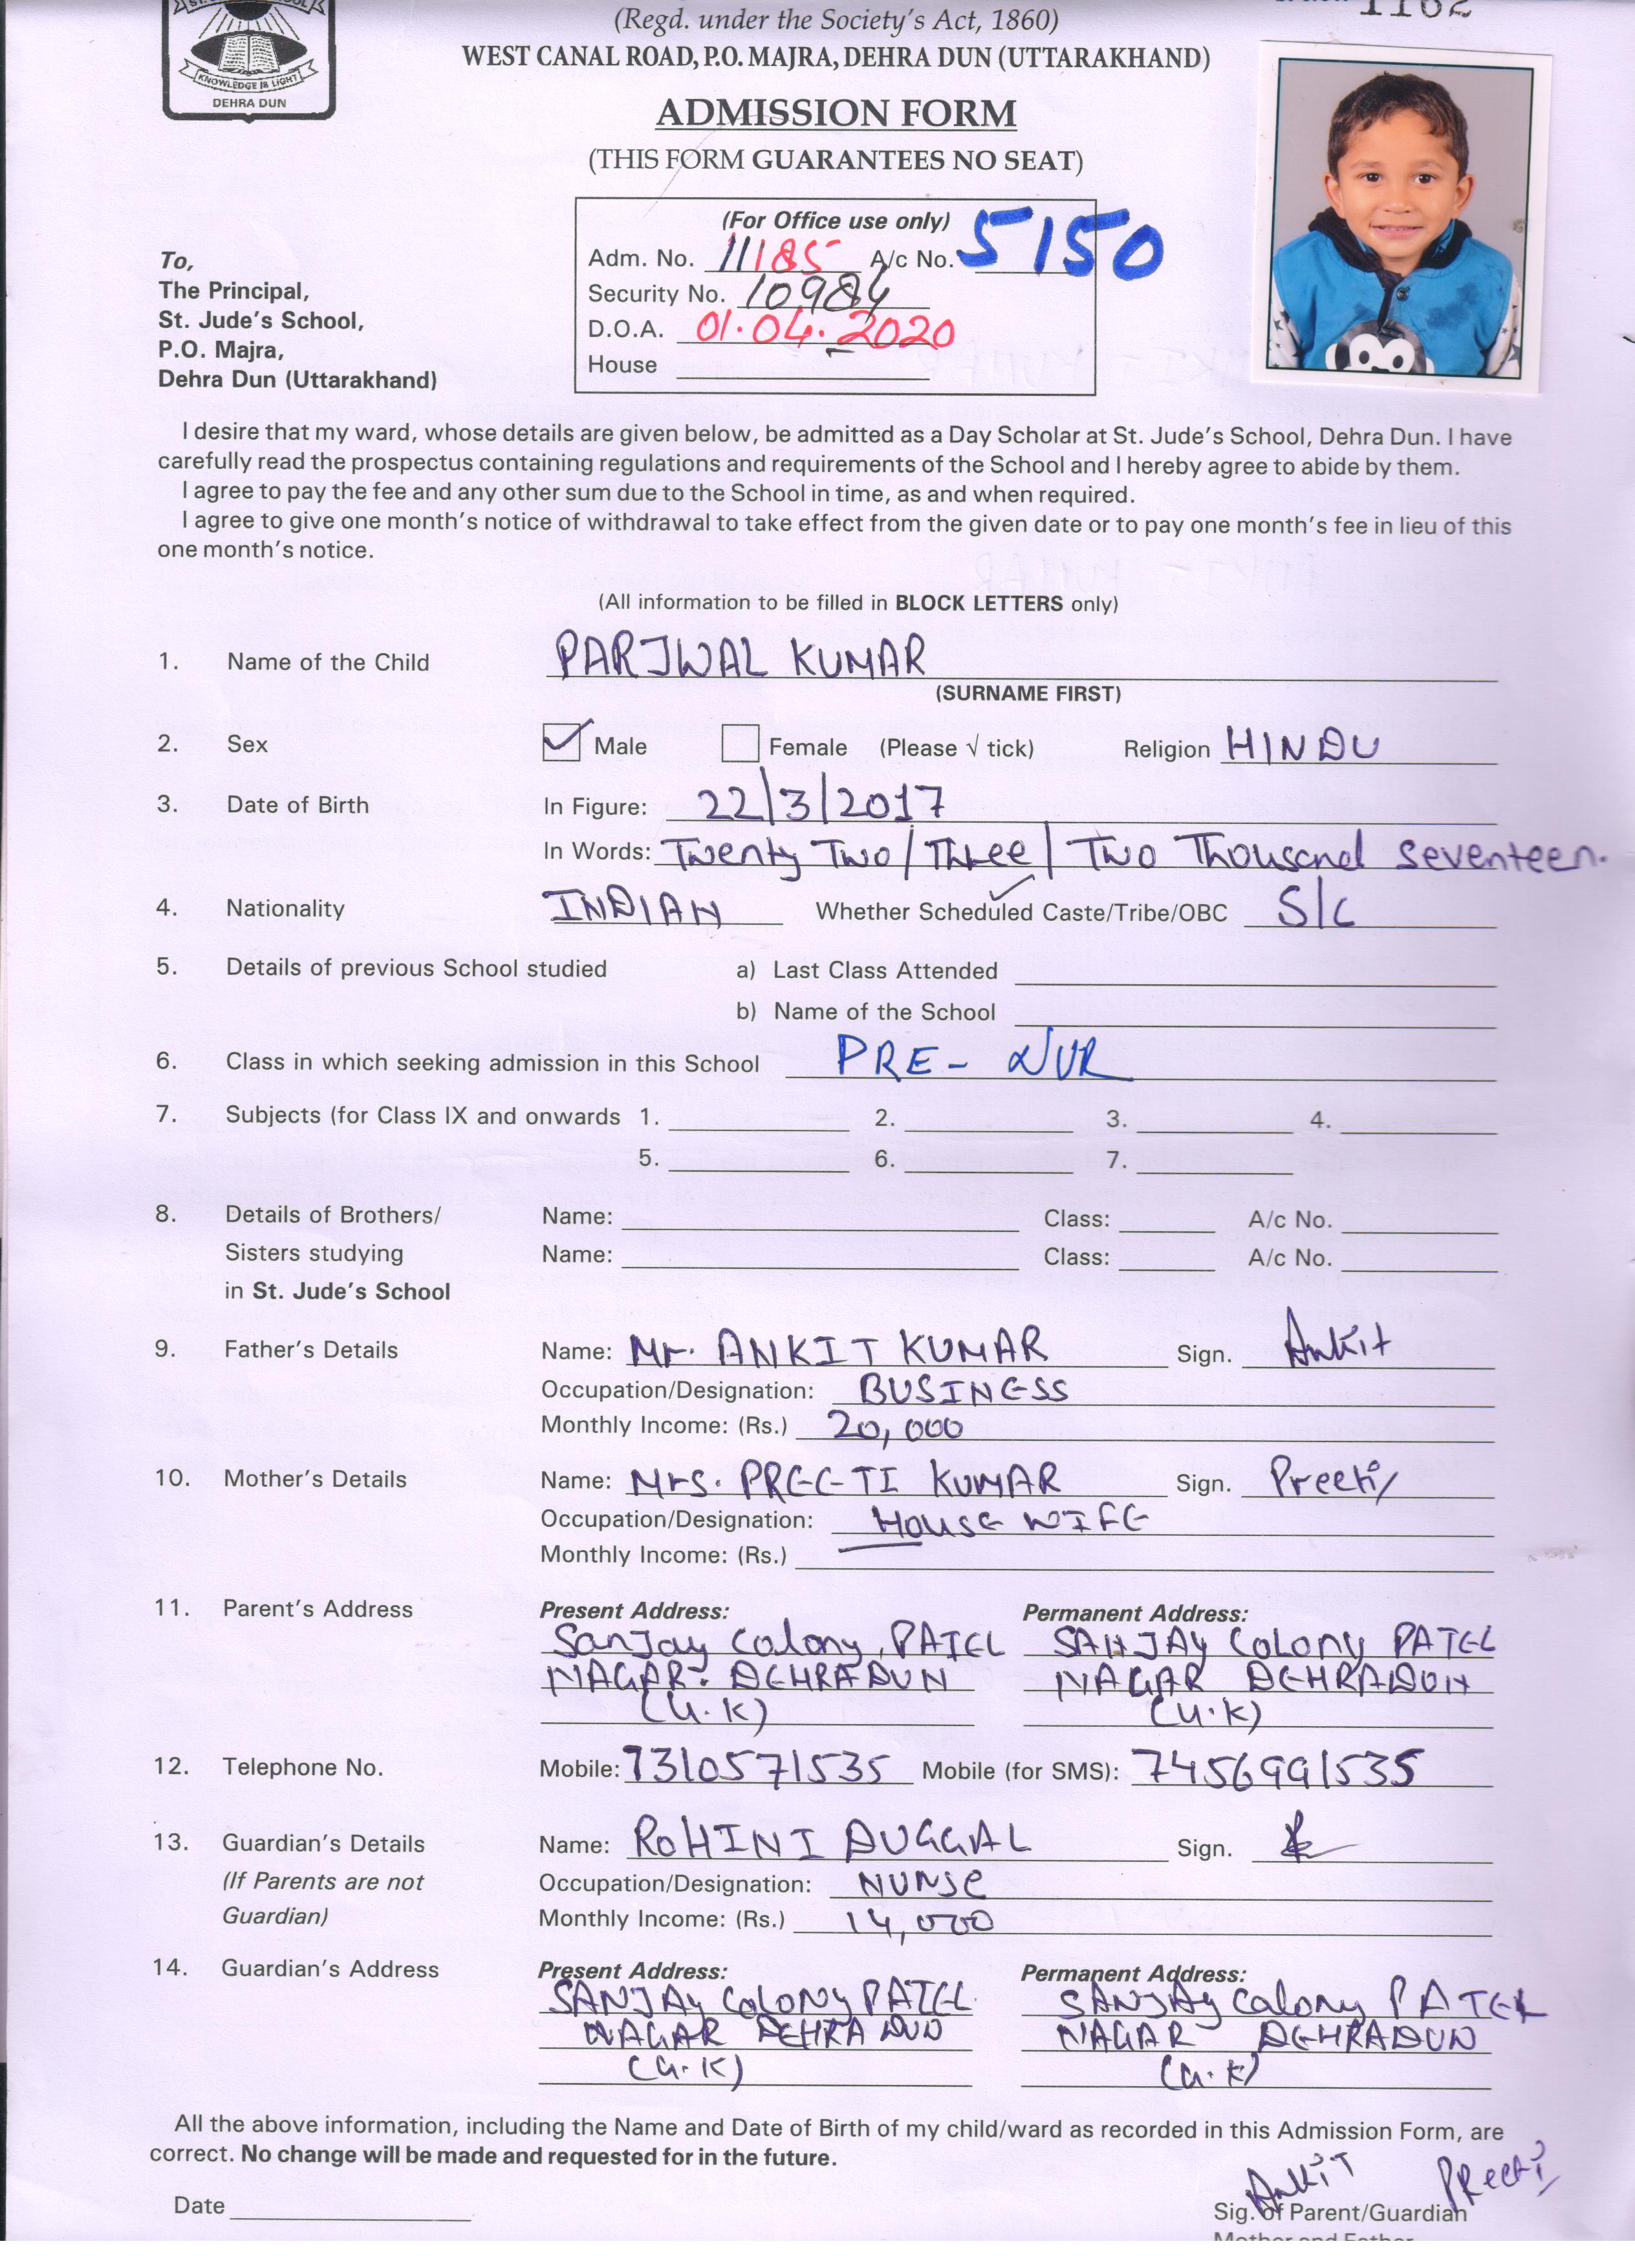 KNOWLEDGE IS LIGHT
DEHRA DUN
(Regd. under the Society's Act, 1860)
WEST CANAL ROAD, P.O. MAJRA, DEHRA DUN (UTTARAKHAND)
ADMISSION FORM
(THIS FORM GUARANTEES NO SEAT)
(For Office use only)
Adm. No. 11185 A/c No. 5150
Security No. 10984
D.O.A. 01.04.2020
House
To,
The Principal,
St. Jude's School,
P.O. Majra,
Dehra Dun (Uttarakhand)
I desire that my ward, whose details are given below, be admitted as a Day Scholar at St. Jude's School, Dehra Dun. I have
carefully read the prospectus containing regulations and requirements of the School and I hereby agree to abide by them.
I agree to pay the fee and any other sum due to the School in time, as and when required.
I agree to give one month's notice of withdrawal to take effect from the given date or to pay one month's fee in lieu of this
one month's notice.
(All information to be filled in BLOCK LETTERS only)
1. Name of the Child PARJWAL KUMAR
(SURNAME FIRST)
2. Sex ✓ Male Female (Please √ tick) Religion HINDU
3. Date of Birth In Figure: 22/3/2017
In Words: Twenty Two / Three / Two Thousand Seventeen.
4. Nationality INDIAN Whether Scheduled Caste/Tribe/OBC S/C
5. Details of previous School studied a) Last Class Attended
b) Name of the School
6. Class in which seeking admission in this School PRE - NUR
7. Subjects (for Class IX and onwards 1. 2. 3. 4.
5. 6. 7.
8. Details of Brothers/ Name: Class: A/c No.
Sisters studying Name: Class: A/c No.
in St. Jude's School
9. Father's Details Name: Mr. ANKIT KUMAR Sign. Ankit
Occupation/Designation: BUSINESS
Monthly Income: (Rs.) 20,000
10. Mother's Details Name: Mrs. PREETI KUMAR Sign. Preeti
Occupation/Designation: HOUSE WIFE
Monthly Income: (Rs.)
11. Parent's Address Present Address: Permanent Address:
Sanjay Colony, PATEL SANJAY COLONY PATEL
NAGAR. DEHRADUN NAGAR DEHRADUN
(U.K) (U.K)
12. Telephone No. Mobile: 7310571535 Mobile (for SMS): 7456991535
13. Guardian's Details Name: ROHINI DUGGAL Sign.
(If Parents are not Occupation/Designation: NURSE
Guardian) Monthly Income: (Rs.) 14,000
14. Guardian's Address Present Address: Permanent Address:
SANJAY COLONY PATEL SANJAY Colony PATEL
NAGAR DEHRA DUN NAGAR DEHRADUN
(U.K) (U.K)
All the above information, including the Name and Date of Birth of my child/ward as recorded in this Admission Form, are
correct. No change will be made and requested for in the future.
Ankit Preeti
Date Sig. of Parent/Guardian